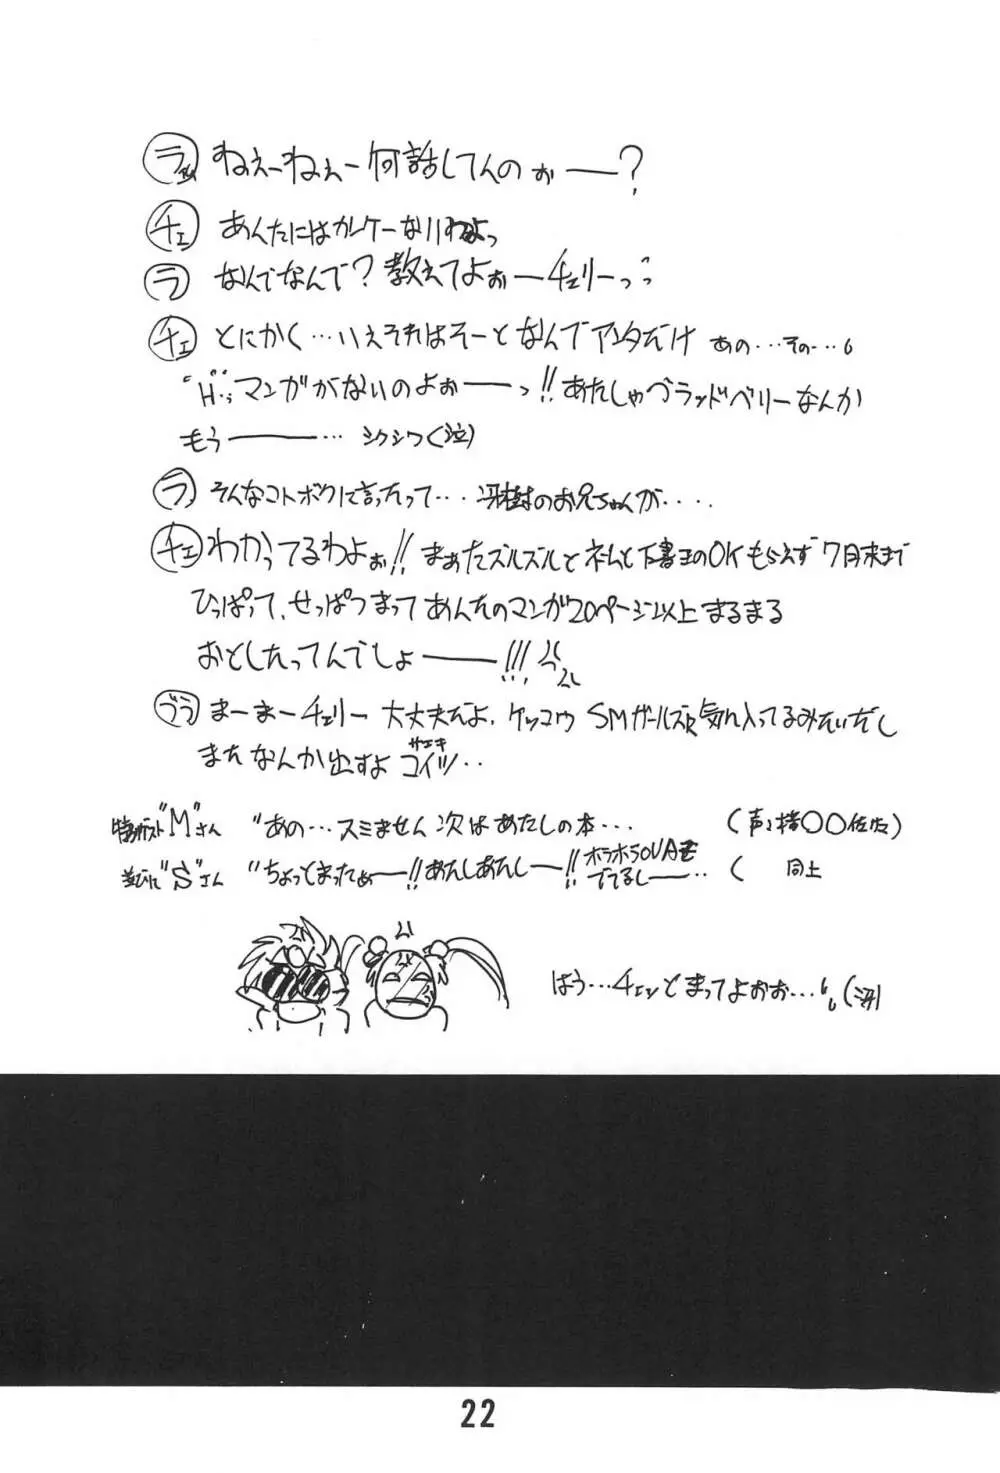 ラ ねえーねえー何話してんのぉー？
チェ あんたにはカンケーないわよっ
ラ なんでなんで？教えてよぉーチェリーっ
チェ とにかく…いえそれはそーとなんでアンタだけ あの…その…
"H"マンガがないのよぉーっ!!あたしゃブラッドベリーなんか
もうー… シクシク(泣)
ラ そんなコトボクに言ったって… 冴樹のお兄ちゃんが‥‥
チェ わかってるわよぉ!!まぁたズルズルとネームと下書きのOKもらえず7月末まで
ひっぱって、せっぱつまってあんたのマンガ20ページ以上まるまる
おとしたってんでしょー!!!
ブラ まーまーチェリー 大丈夫だよ、ケッコウSMガールズ気に入ってるみたいだし
またなんか出すよコイツ‥
サエキ
特別ゲスト"M"さん "あの…スミません次はあたしの本… (声
並びに"S"さん "ちょっとまったぁー!!あたしあたしー!!ホラホラOVAも
でてるしー‥ ( 同上
はう…チェッとまってよぉぉ… (冴)
22